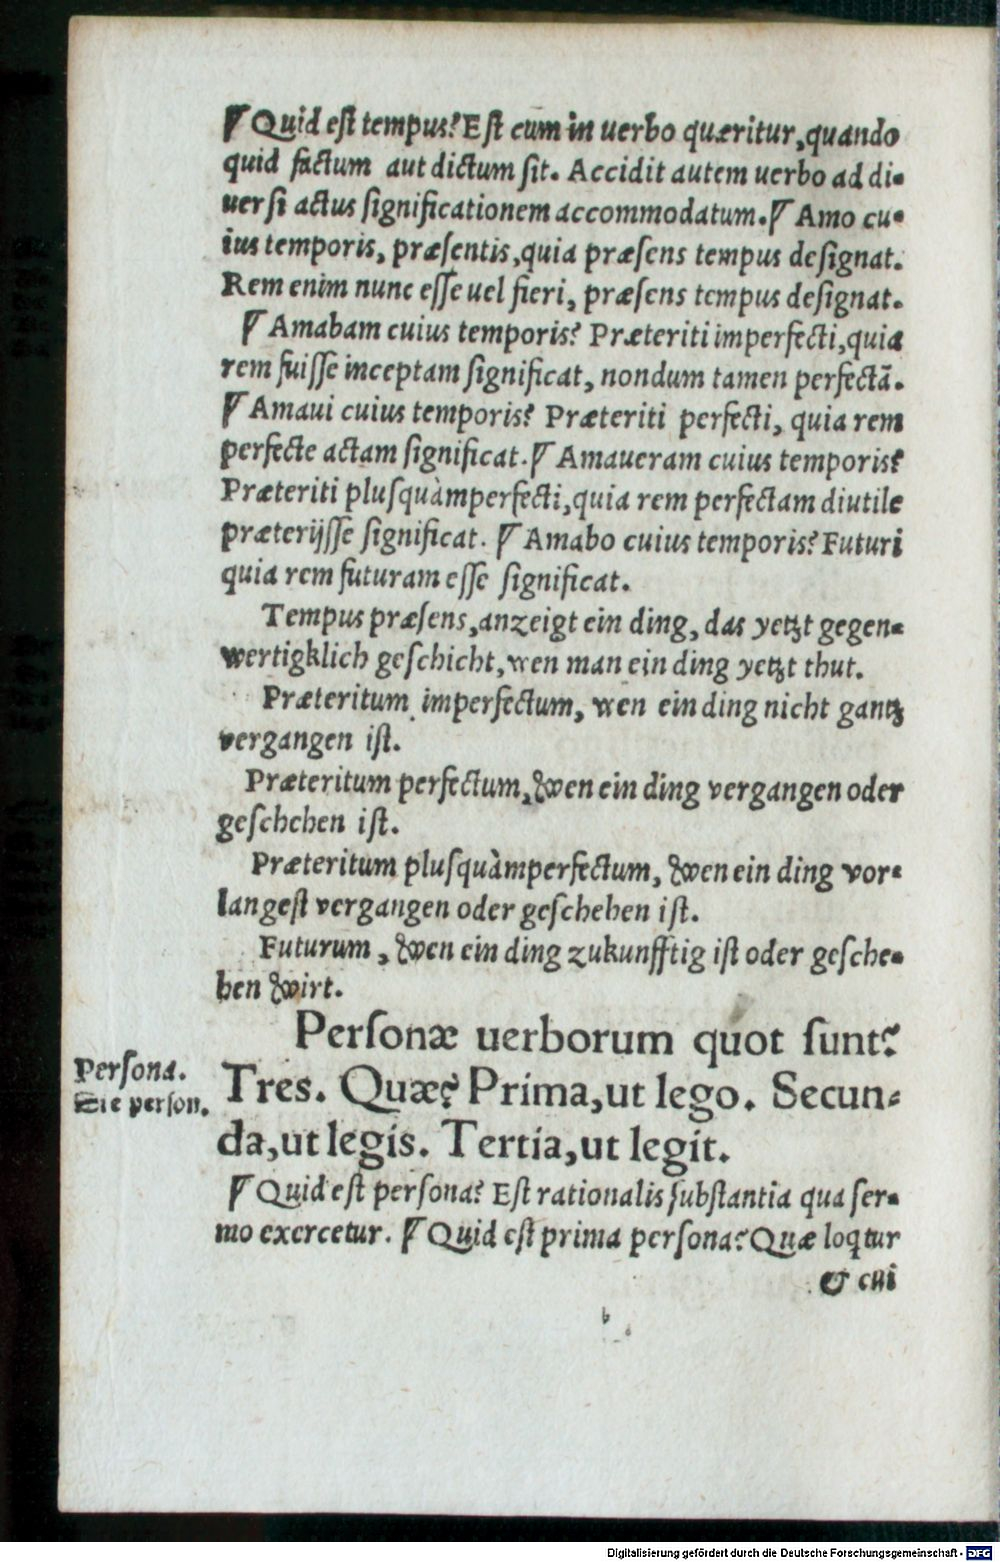 ¶ Quid est tempus? Est cum in uerbo quæritur, quando
quid factum aut dictum sit. Accidit autem uerbo ad di-
uersi actus significationem accommodatum. ¶ Amo cu-
ius temporis, præsentis, quia præsens tempus designat.
Rem enim nunc esse uel fieri, præsens tempus designat.
¶ Amabam cuius temporis? Præteriti imperfecti, quia
rem fuisse inceptam significat, nondum tamen perfectā.
¶ Amaui cuius temporis? Præteriti perfecti, quia rem
perfecte actam significat. ¶ Amaueram cuius temporis?
Præteriti plusquàmperfecti, quia rem perfectam diutile
præterijsse significat. ¶ Amabo cuius temporis? Futuri
quia rem futuram esse significat.
Tempus præsens, anzeigt ein ding, das yetzt gegen-
wertigklich geschicht, wen man ein ding yetzt thut.
Præteritum imperfectum, wen ein ding nicht gantz
vergangen ist.
Præteritum perfectum, wen ein ding vergangen oder
geschehen ist.
Præteritum plusquàmperfectum, wen ein ding vor-
langest vergangen oder geschehen ist.
Futurum, wen ein ding zukunfftig ist oder gesche-
hen wirt.
Personæ uerborum quot sunt?
Persona.
Die person.
Tres. Quæ? Prima, ut lego. Secun-
da, ut legis. Tertia, ut legit.
¶ Quid est persona? Est rationalis substantia qua ser-
mo exercetur. ¶ Quid est prima persona? Quæ loqtur
& cui
Digitalisierung gefördert durch die Deutsche Forschungsgemeinschaft - DFG